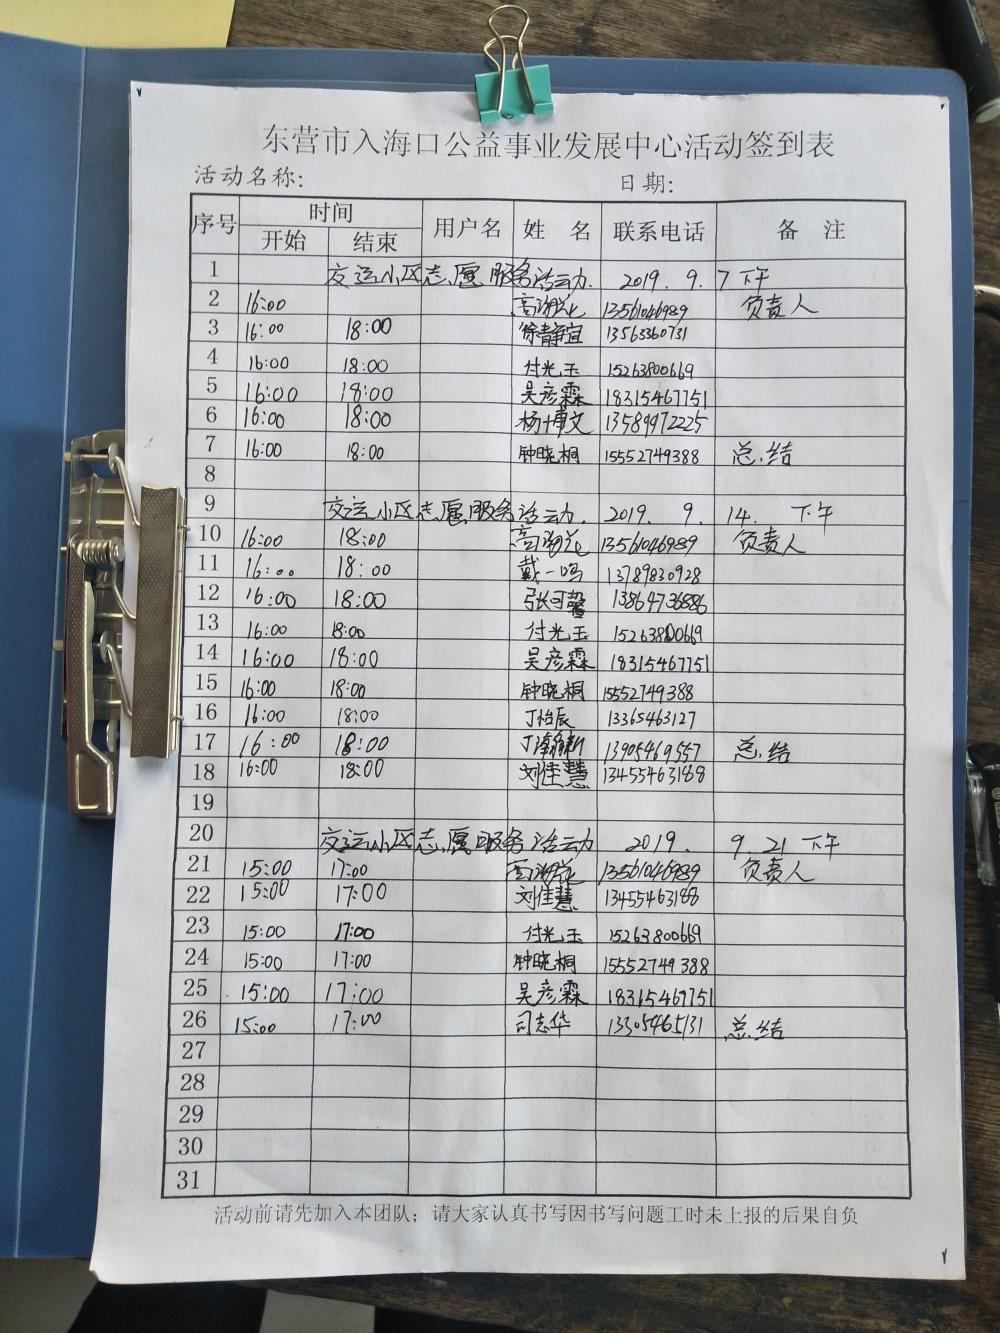 东营市入海口公益事业发展中心活动签到表
活动名称: 日期:
序号 时间 用户名 姓 名 联系电话 备 注
开始 结束
1 交运小区志愿服务活动. 2019. 9. 7 下午
2 16:00 13561046989 负责人
3 16:00 18:00 徐静宜 13563360731
4 16:00 18:00 付光玉 15263800669
5 16:00 18:00 吴彦霖 18315467751
6 16:00 18:00 杨博文 13589972225
7 16:00 18:00 钟晓桐 15552749388 总结
8
9 交运小区志愿服务活动. 2019. 9. 14. 下午
10 16:00 18:00 13561046989 负责人
11 16:00 18:00 戴一鸣 13789830928
12 16:00 18:00 张可馨 13864736886
13 16:00 18:00 付光玉 15263800669
14 16:00 18:00 吴彦霖 18315467751
15 16:00 18:00 钟晓桐 15552749388
16 16:00 18:00 丁怡辰 13365463127
17 16:00 18:00 13905469557 总结
18 16:00 18:00 刘佳慧 13455463188
19
20 交运小区志愿服务活动 2019. 9. 21 下午
21 15:00 17:00 13561046989 负责人
22 15:00 17:00 刘佳慧 13455463188
23 15:00 17:00 付光玉 15263800669
24 15:00 17:00 钟晓桐 15552749388
25 15:00 17:00 吴彦霖 18315467751
26 15:00 17:00 司志华 13305465131 总结
27
28
29
30
31
活动前请先加入本团队；请大家认真书写因书写问题工时未上报的后果自负